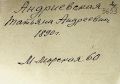 Андриевская
Татьяна Андреевна
1890г.
М. Морская 60